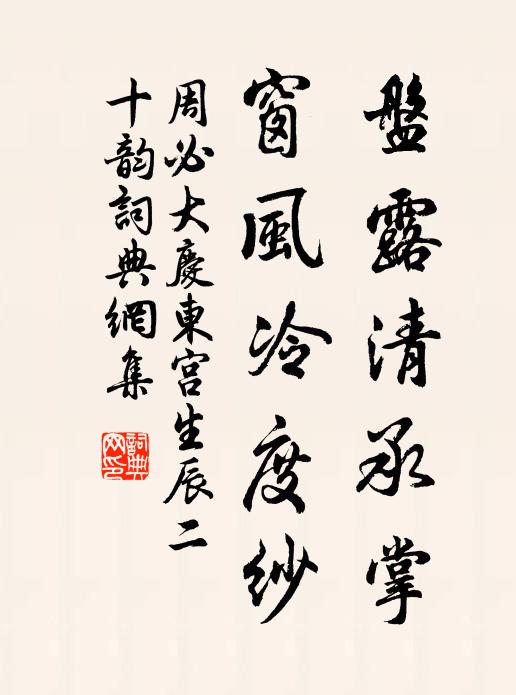 盤露清承掌
窗風冷度紗
周必大慶東宮生辰二
十韵詞典網集
詞典
网印